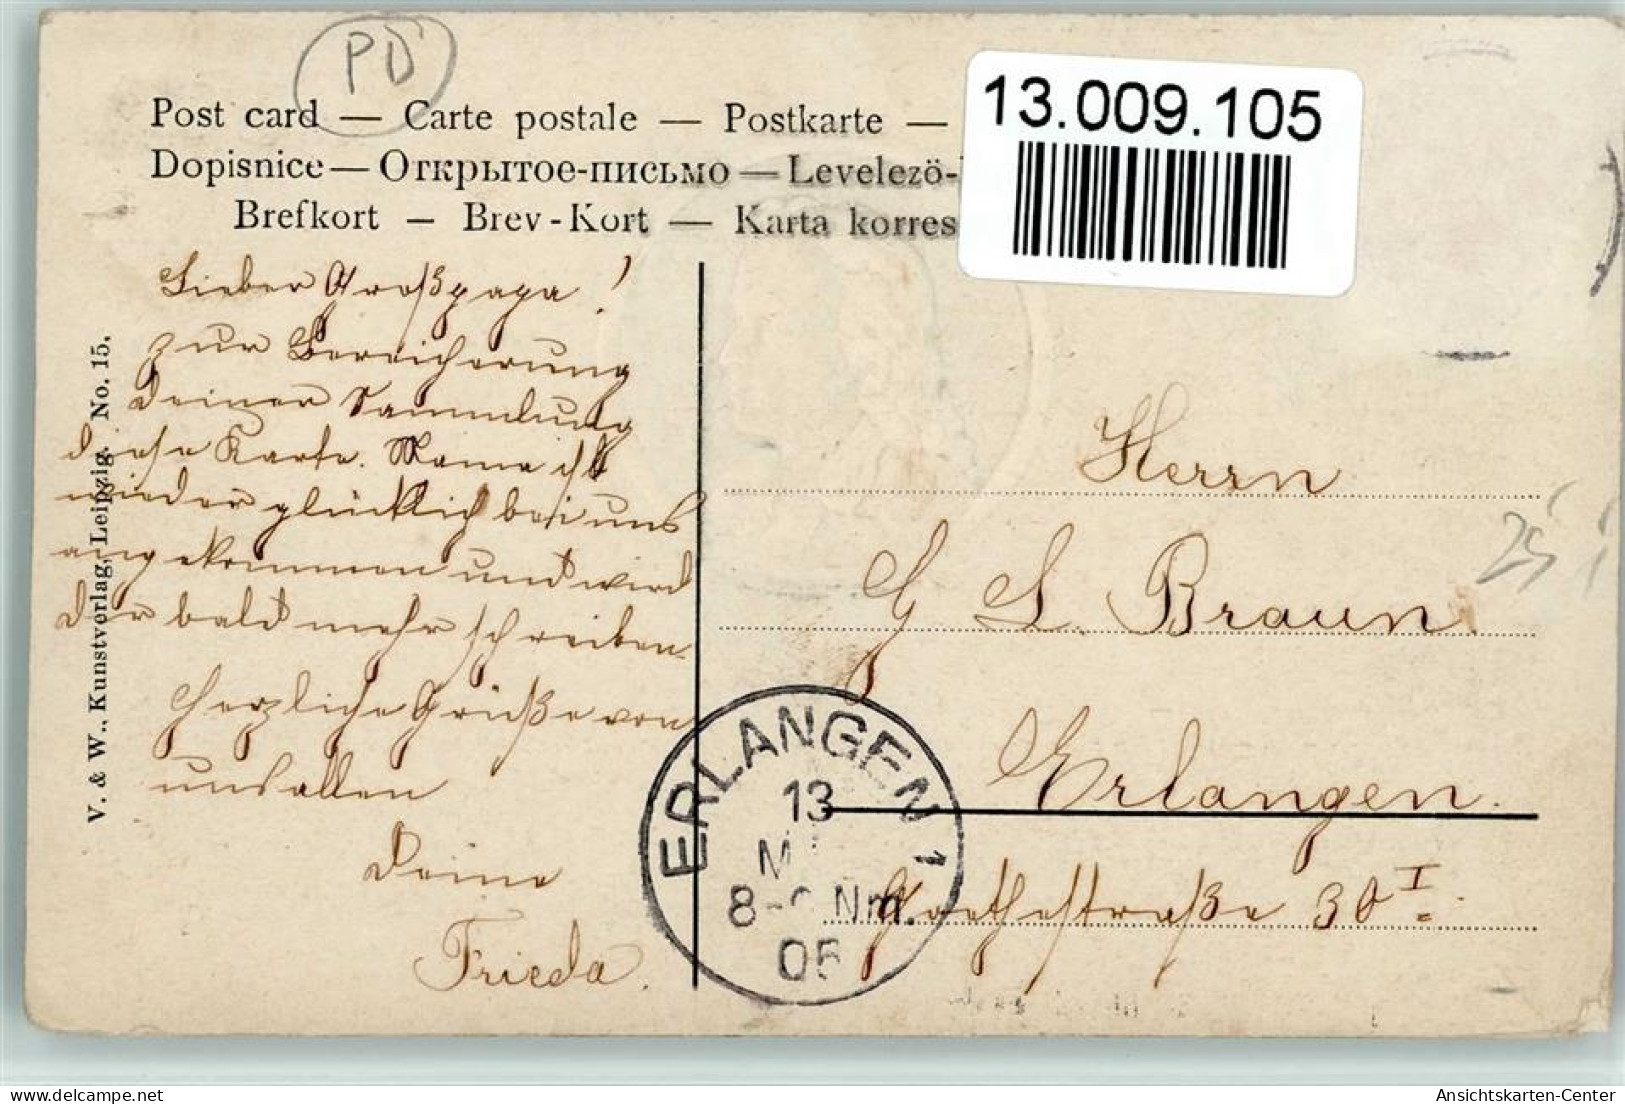 PD
13.009.105
Post card — Carte postale — Postkarte —
Dopisnice — Открытое-письмо — Levelezö-
Brefkort — Brev-Kort — Karta korres
V. & W., Kunstverlag, Leipzig. No. 15.
Lieber Großpapa!
zur Bereicherung
Deiner Sammlung
diese Karte. Mama ist
wieder glücklich bei uns
angekommen und wird
Dir bald mehr schreiben.
Herzliche Grüße von
uns allen
Deine
Frieda.
Herrn
G L. Braun.
Erlangen.
Goethestraße 30 I
25
ERLANGEN 1
13
8-9 Nm.
05
Ansichtskarten-Center